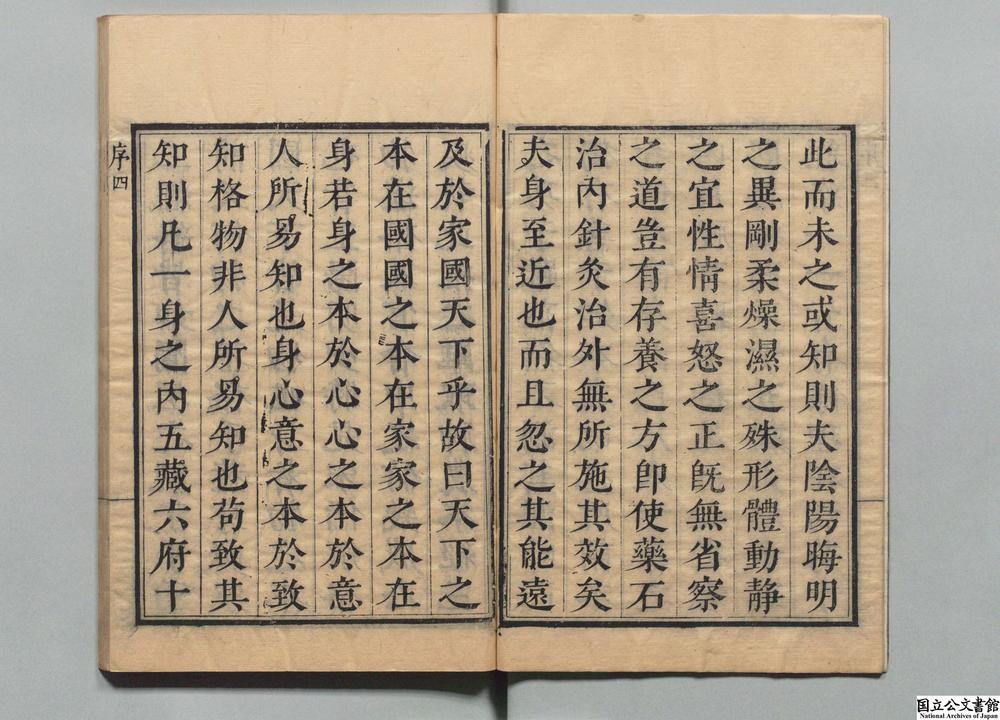 此而未之或知則夫陰陽晦明
之異剛柔燥濕之殊形體動静
之宜性情喜怒之正既無省察
之道豈有存養之方即使藥石
治內針灸治外無所施其效矣
夫身至近也而且忽之其能遠
及於家國天下乎故曰天下之
本在國國之本在家家之本在
身若身之本於心心之本於意
人所易知也身心意之本於致
知格物非人所易知也苟致其
知則凡一身之內五藏六府十
序四
国立公文書館
National Archives of Japan